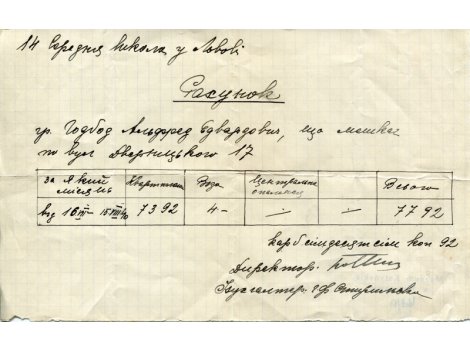 14 Середня школа у Львові
Рахунок
гр. Годбод Альфред Едвардович, що мешкає
по вул Дверницького 17
за який місяць Квартплата Вода Центральне опалення Всього
від 16 73 92 4 – – – 77 92
карб сімдесятсім коп 92
Директор
Бухгалтер